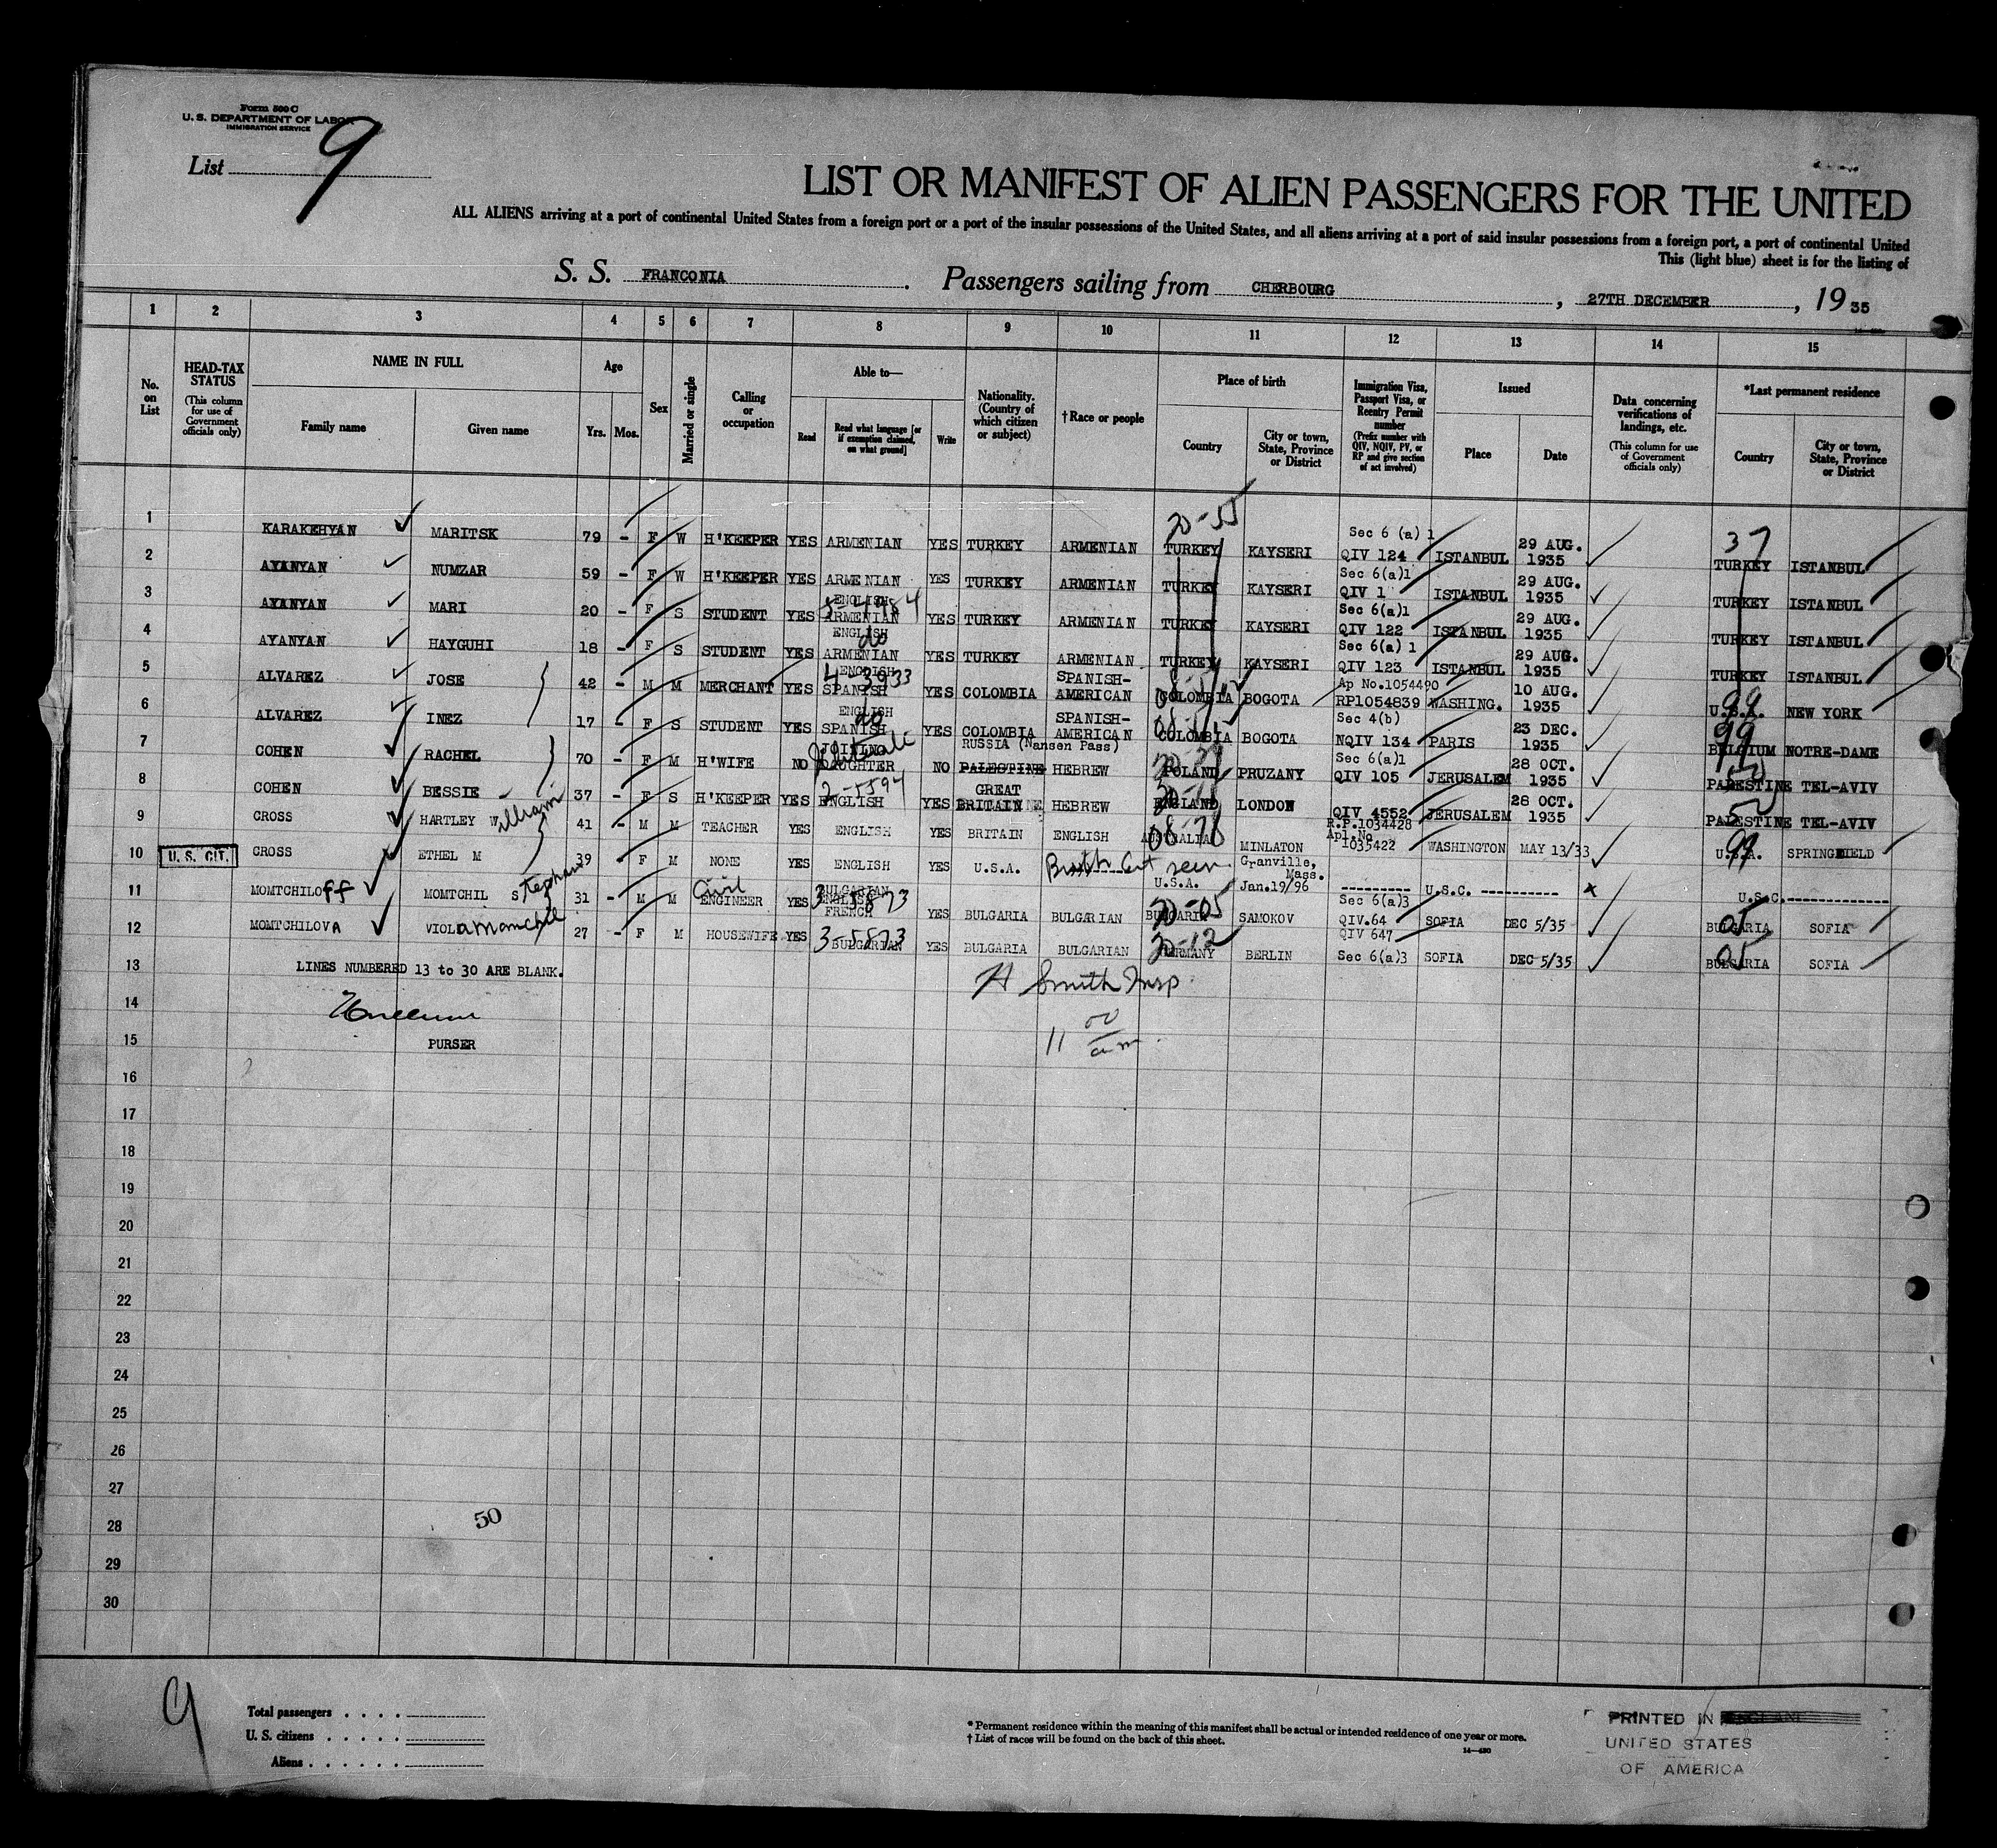 Form 500 C
U. S. DEPARTMENT OF LABOR
IMMIGRATION SERVICE
List 9
LIST OR MANIFEST OF ALIEN PASSENGERS FOR THE UNITED
ALL ALIENS arriving at a port of continental United States from a foreign port or a port of the insular possessions of the United States, and all aliens arriving at a port of said insular possessions from a foreign port, a port of continental United
This (light blue) sheet is for the listing of
S. S. FRANCONIA . Passengers sailing from CHERBOURG , 27TH DECEMBER , 19 35
1 2 3 4 5 6 7 8 9 10 11 12 13 14 15
No. on List
HEAD-TAX STATUS (This column for use of Government officials only)
NAME IN FULL Family name Given name
Age Yrs. Mos.
Sex
Married or single
Calling or occupation
Able to— Read Read what language [or if exemption claimed, on what ground] Write
Nationality. (Country of which citizen or subject)
†Race or people
Place of birth Country City or town, State, Province or District
Immigration Visa, Passport Visa, or Reentry Permit number (Prefix number with QIV, NQIV, PV, or RP and give section of act involved)
Issued Place Date
Data concerning verifications of landings, etc. (This column for use of Government officials only)
*Last permanent residence Country City or town, State, Province or District
1 KARAKEHYAN MARITSK 79 - F W H'KEEPER YES ARMENIAN YES TURKEY ARMENIAN 20-55 TURKEY KAYSERI Sec 6 (a) 1 QIV 124 ISTANBUL 29 AUG. 1935 37 TURKEY ISTANBUL
2 AYANYAN NUMZAR 59 - F W H'KEEPER YES ARMENIAN YES TURKEY ARMENIAN TURKEY KAYSERI Sec 6(a)1 QIV 1 ISTANBUL 29 AUG. 1935 TURKEY ISTANBUL
3 AYANYAN MARI 20 - F S STUDENT YES ENGLISH 3-4984 ARMENIAN YES TURKEY ARMENIAN TURKEY KAYSERI Sec 6(a)1 QIV 122 ISTANBUL 29 AUG. 1935 TURKEY ISTANBUL
4 AYANYAN HAYGUHI 18 - F S STUDENT YES ENGLISH do ARMENIAN YES TURKEY ARMENIAN TURKEY KAYSERI Sec 6(a) 1 QIV 123 ISTANBUL 29 AUG. 1935 TURKEY ISTANBUL
5 ALVAREZ JOSE 42 - M M MERCHANT YES ENGLISH 4-3933 SPANISH YES COLOMBIA SPANISH-AMERICAN COLOMBIA BOGOTA Ap No.1054490 RP1054839 WASHING. 10 AUG. 1935 99 U.S.A. NEW YORK
6 ALVAREZ INEZ 17 - F S STUDENT YES ENGLISH do SPANISH YES COLOMBIA SPANISH-AMERICAN COLOMBIA BOGOTA Sec 4(b) NQIV 134 PARIS 23 DEC. 1935 99 BELGIUM NOTRE-DAME
7 COHEN RACHEL 70 - F M H'WIFE NO DAUGHTER NO RUSSIA (Nansen Pass) PALESTINE HEBREW POLAND PRUZANY Sec 6(a)1 QIV 105 JERUSALEM 28 OCT. 1935 50 PALESTINE TEL-AVIV
8 COHEN BESSIE - 37 - F S H'KEEPER YES 2-5594 ENGLISH YES GREAT BRITAIN HEBREW ENGLAND LONDON QIV 4552 JERUSALEM 28 OCT. 1935 50 PALESTINE TEL-AVIV
9 CROSS HARTLEY William 41 - M M TEACHER YES ENGLISH YES BRITAIN ENGLISH AUSTRALIA MINLATON R.P.1034428 Apl.No 1035422 WASHINGTON MAY 13/33 99 U.S.A. SPRINGFIELD
10 U. S. CIT. CROSS ETHEL M 39 F M NONE YES ENGLISH YES U.S.A. Birth Cert seen U.S.A. Granville, Mass. Jan.19/96 --------- U.S.C. ---------- x U.S.C.-------------
11 MOMTCHILOff MOMTCHIL Stephan 31 - M M Civil ENGINEER YES BULGARIAN ENGLISH FRENCH 3-5873 YES BULGARIA BULGARIAN 20-05 BULGARIA SAMOKOV Sec 6(a)3 QIV.64 SOFIA DEC 5/35 05 BULGARIA SOFIA
12 MOMTCHILOVA VIOLA 27 - F M HOUSEWIFE YES 3-5873 BULGARIAN YES BULGARIA BULGARIAN 20-12 GERMANY BERLIN QIV 647 Sec 6(a)3 SOFIA DEC 5/35 05 BULGARIA SOFIA
13 LINES NUMBERED 13 to 30 ARE BLANK.
A Smith Insp
14
15 PURSER 11 00 am
16
17
18
19
20
21
22
23
24
25
26
27
28 50
29
30
9
Total passengers . . . .
U. S. citizens . . . . .
Aliens . . . . . .
* Permanent residence within the meaning of this manifest shall be actual or intended residence of one year or more.
† List of races will be found on the back of this sheet.
14—430
PRINTED IN
UNITED STATES
OF AMERICA